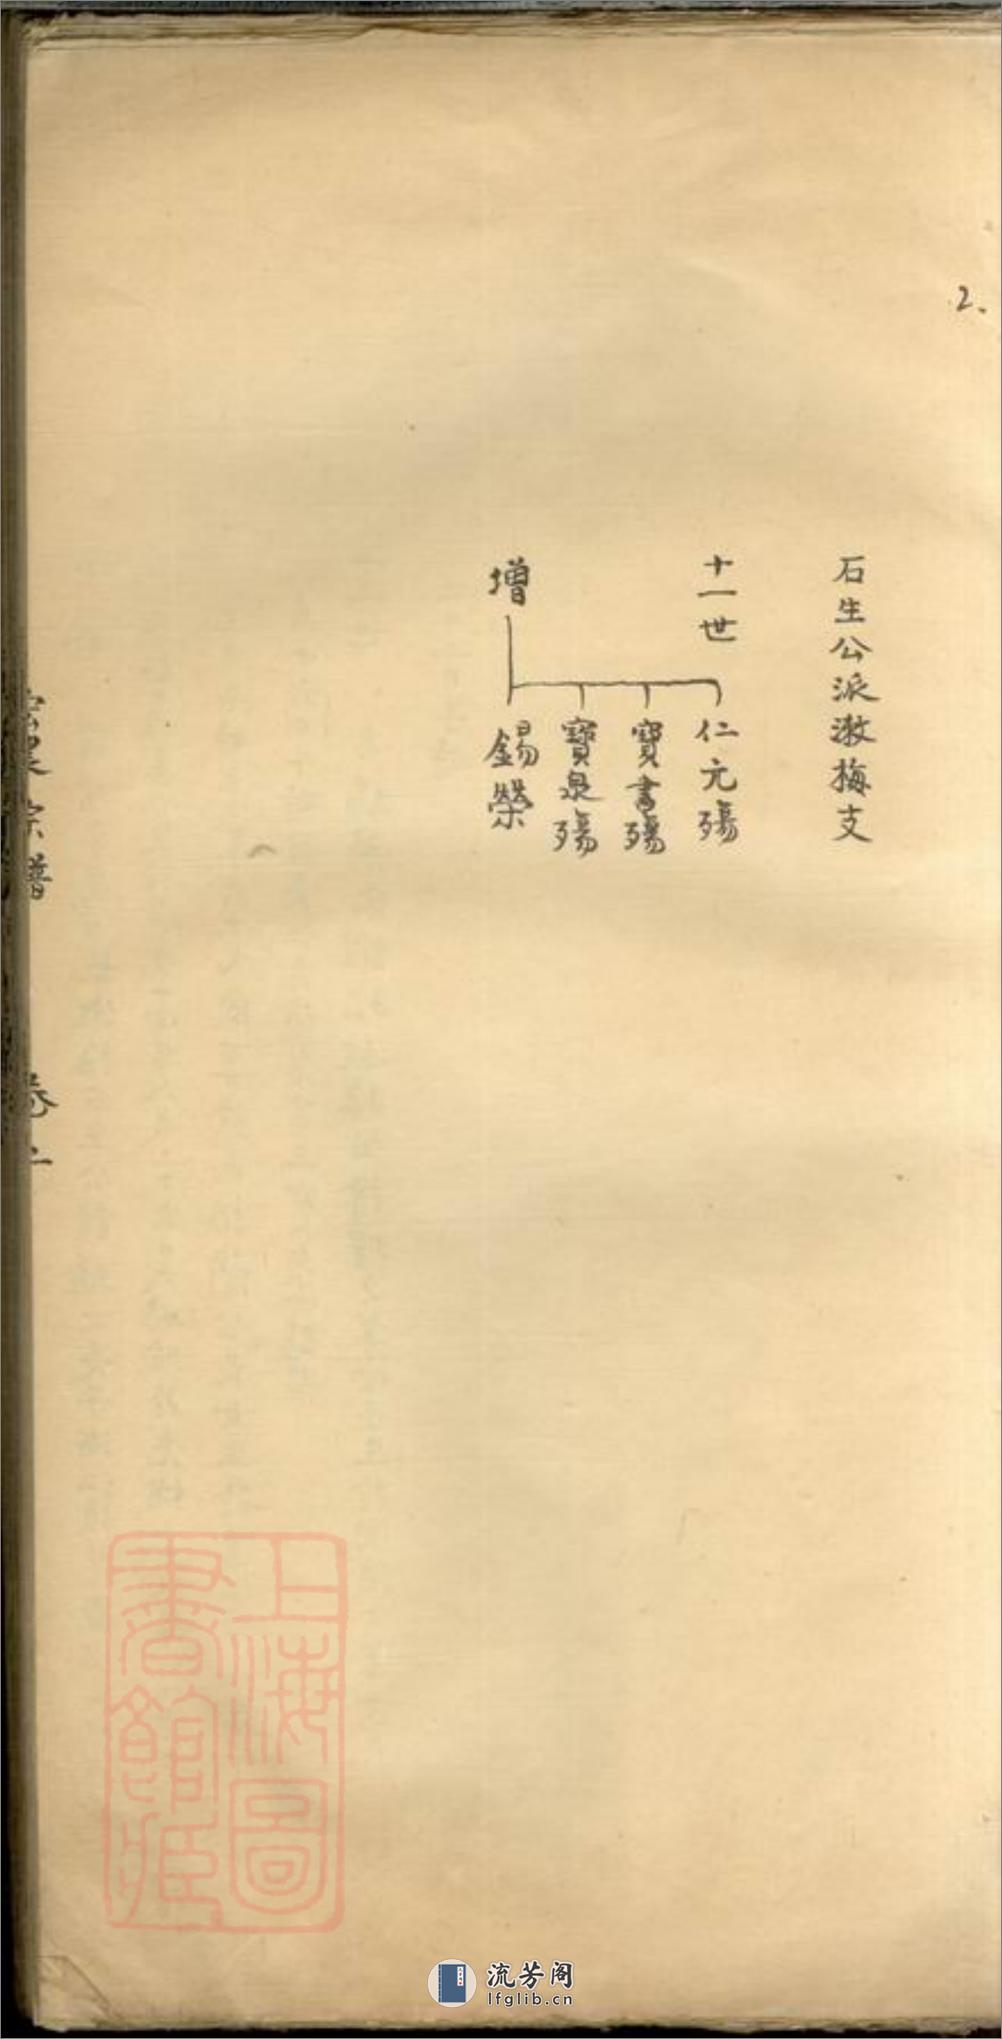 2.
石生公派漱梅支
十一世
仁元殤
寶書殤
寶泉殤
增
錫榮
宗譜
卷
上海圖書館藏
流芳阁
lfglib.cn